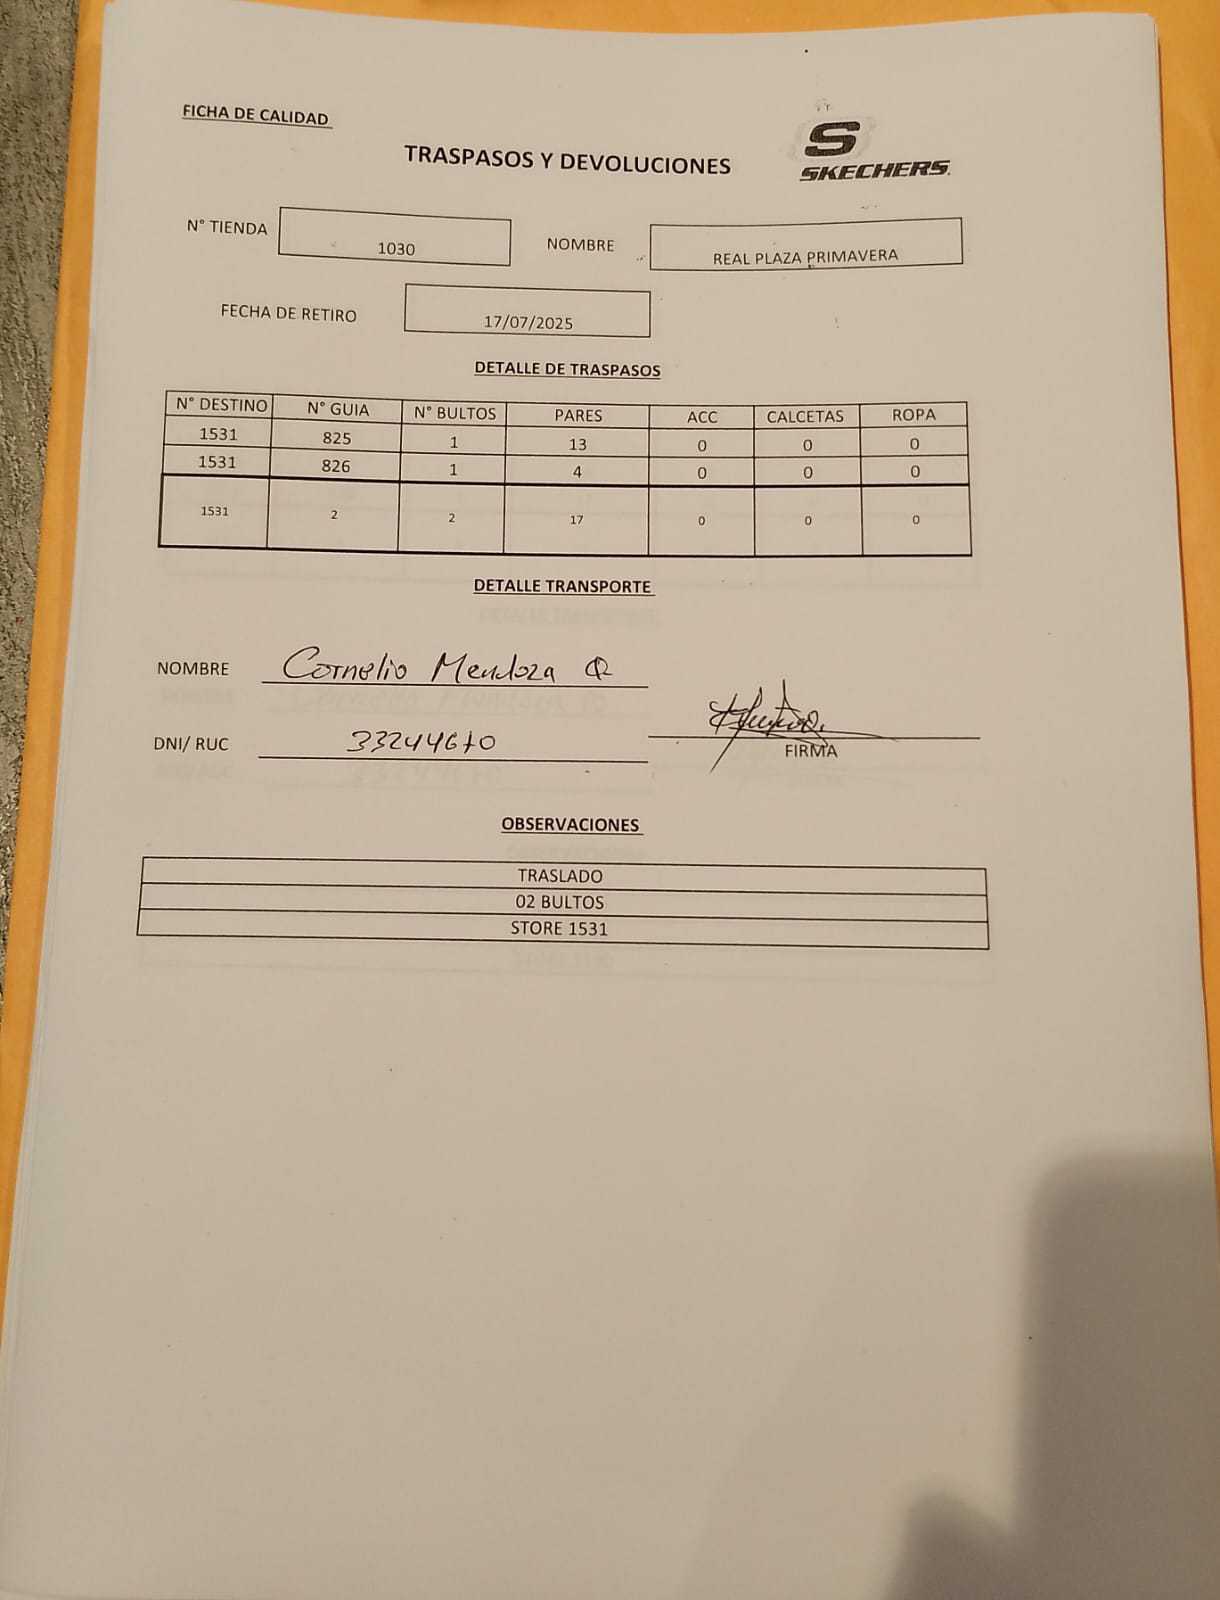 FICHA DE CALIDAD
TRASPASOS Y DEVOLUCIONES
S
SKECHERS
N° TIENDA 1030 NOMBRE REAL PLAZA PRIMAVERA
FECHA DE RETIRO 17/07/2025
DETALLE DE TRASPASOS
N° DESTINO N° GUIA N° BULTOS PARES ACC CALCETAS ROPA
1531 825 1 13 0 0 0
1531 826 1 4 0 0 0
1531 2 2 17 0 0 0
DETALLE TRANSPORTE
NOMBRE Cornelio Mendoza Q
DNI/ RUC 33244670
FIRMA
OBSERVACIONES
TRASLADO
02 BULTOS
STORE 1531